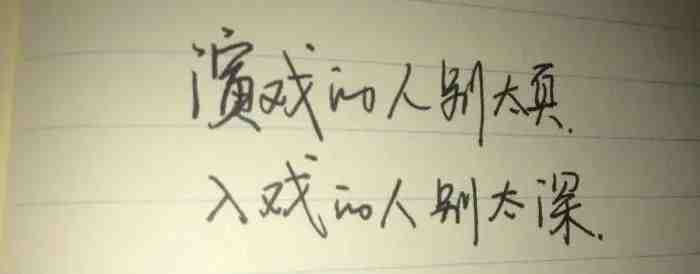 演戏的人别太真.
入戏的人别太深.